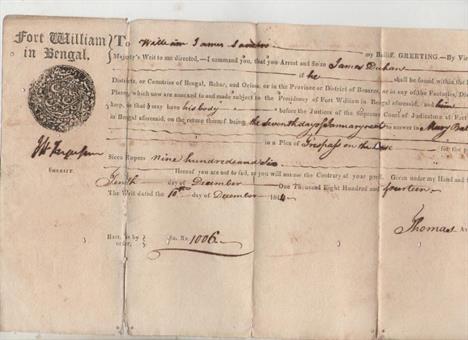 Fort William
in Bengal.
SHERIFF.
To William James
my Bailiff, GREETING.—By Vi
Majesty's Writ to me directed,—I command you, that you Arrest and Seize James
if he shall be found within the
Districts, or Countries of Bengal, Bahar, and Orissa, or in the Province or District of Benares, or in any of the Factories, Dis
Places, which now are annexed to and made subject to the Presidency of Fort William in Bengal aforesaid, and him
keep, so that I may have his body before the Justices of the Supreme Court of Judicature at Fort
in Bengal aforesaid, on the return thereof being the seventh day of January next to answer to Mary
in a Plea of Trespass on the Case for the
Sicca Rupees nine hundred and six
Hereof you are not to fail, as you will answer the Contrary at your peril. Given under my Hand and
Tenth day of December One Thousand Eight Hundred and fourteen
The Writ dated the 10th day of December 1814
by
order, Sa. Rs 1006
Thomas